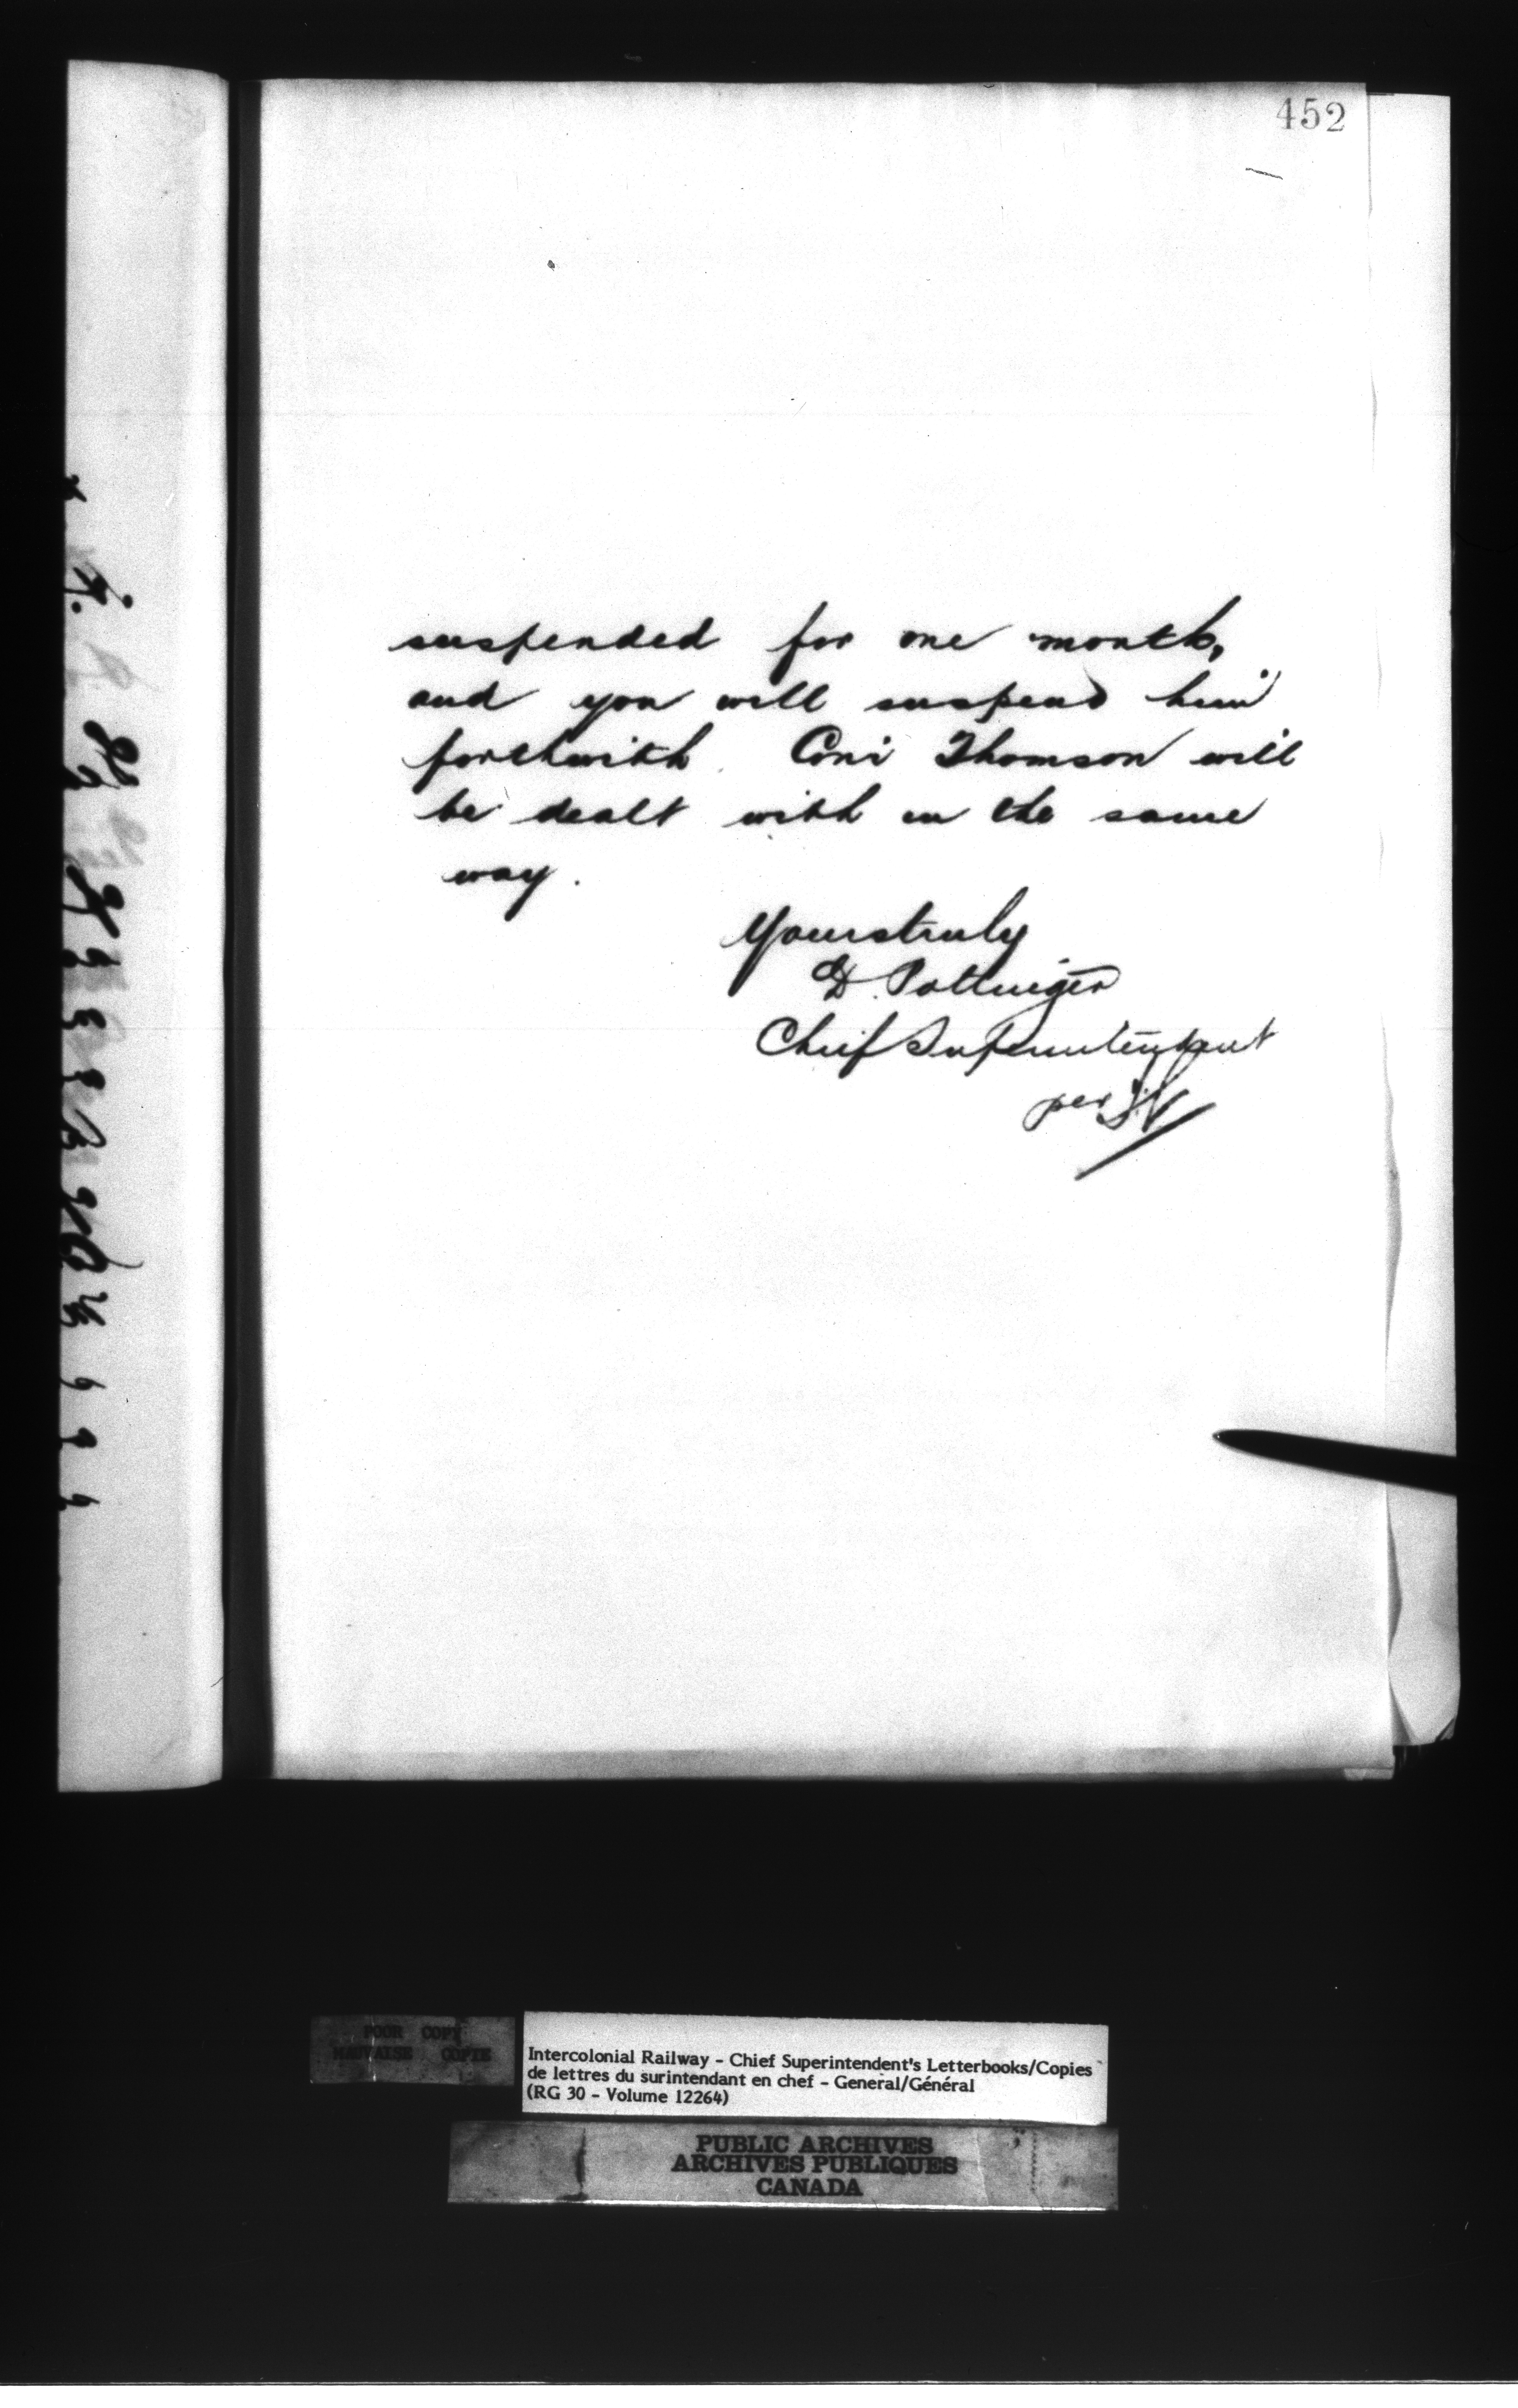 452
suspended for one month,
and you will suspend him
forthwith. Con. Thomson will
be dealt with in the same
way.
Yours truly
D. Pottinger
Chief Superintendent
per
POOR COPY
MAUVAISE COPIE
Intercolonial Railway - Chief Superintendent's Letterbooks/Copies
de lettres du surintendant en chef - General/Général
(RG 30 - Volume 12264)
PUBLIC ARCHIVES
ARCHIVES PUBLIQUES
CANADA